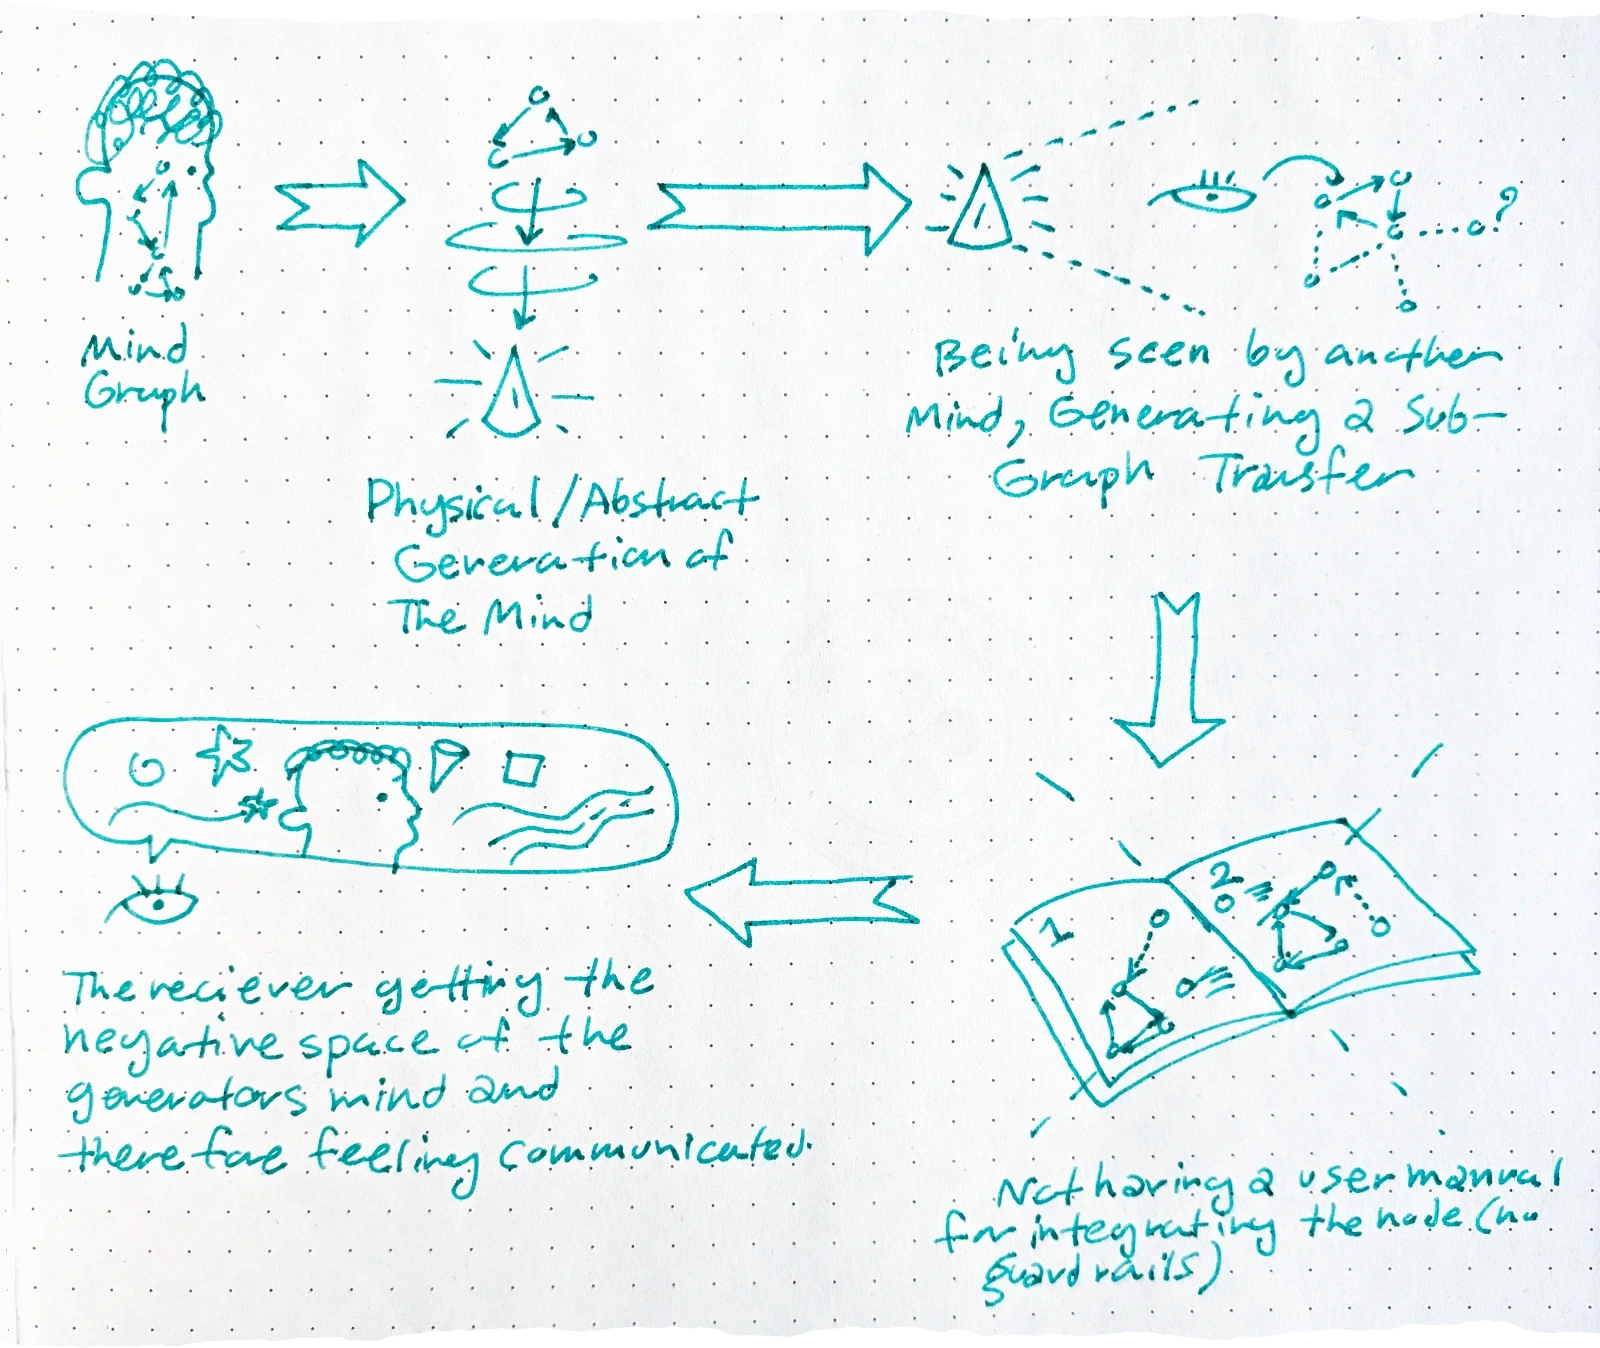 Mind
Graph
Physical/Abstract
Generation of
The Mind
?
Being seen by another
Mind, Generating a Sub-
Graph Transfer
1
2
Not having a user manual
for integrating the node (no
guard rails)
The reciever getting the
negative space of the
generators mind and
therefore feeling communicated.